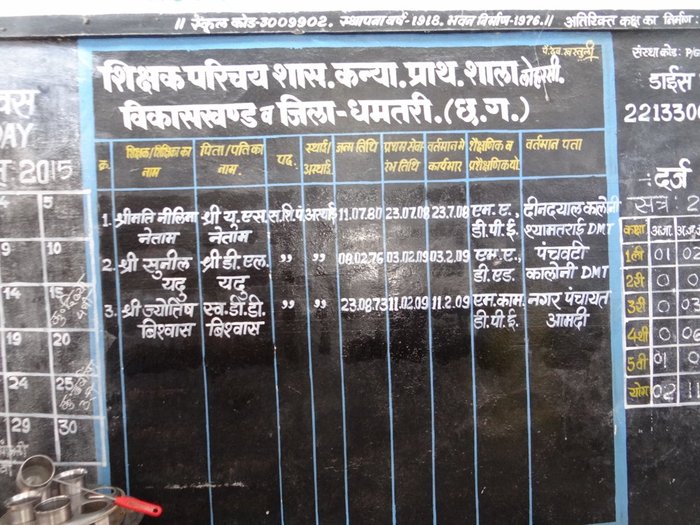 ।। स्कूल कोड-3009902. स्थापना वर्ष-1918. भवन निर्माण-1976.।। अतिरिक्त कक्ष का निर्माण
शिक्षक परिचय शास. कन्या. प्राथ. शाला
विकासखण्ड व जिला-धमतरी. (छ.ग.)
क्र. शिक्षक/शिक्षिका का नाम पिता/पति का नाम. पद. स्थाई/अस्थाई. जन्म तिथि प्रथम सेवा रंभ तिथि वर्तमान में कार्यभार शैक्षणिक व प्रशैक्षणिक यो. वर्तमान पता
1. श्रीमति नीलिमा नेताम श्री यू.एस. नेताम स.शि.पं. अस्थाई 11.07.80 23.07.08 23.7.08 एम.ए., डी.पी.ई. दीनदयाल कालोनी श्यामतराई DMT
2. श्री सुनील यदु श्री डी.एल. यदु ,, ,, 08.02.76 03.02.09 03.2.09 एम.ए., डी.एड. पंचवटी कालोनी DMT
3. श्री ज्योतिष बिश्वास स्व.डी.डी. बिश्वास ,, ,, 23.08.73 11.02.09 11.2.09 एम.काम. डी.पी.ई. नगर पंचायत आमदी
DAY
2015
4 5
9 10
14 15
19 20
24 25
29 30
संस्था कोड:
डाईस
221330
दर्ज
सत्र: 2
कक्षा अजा.
1ली 01 02
2री 0
3री 0 03
4थी 0 06
5वी 01 0
योग 02 11